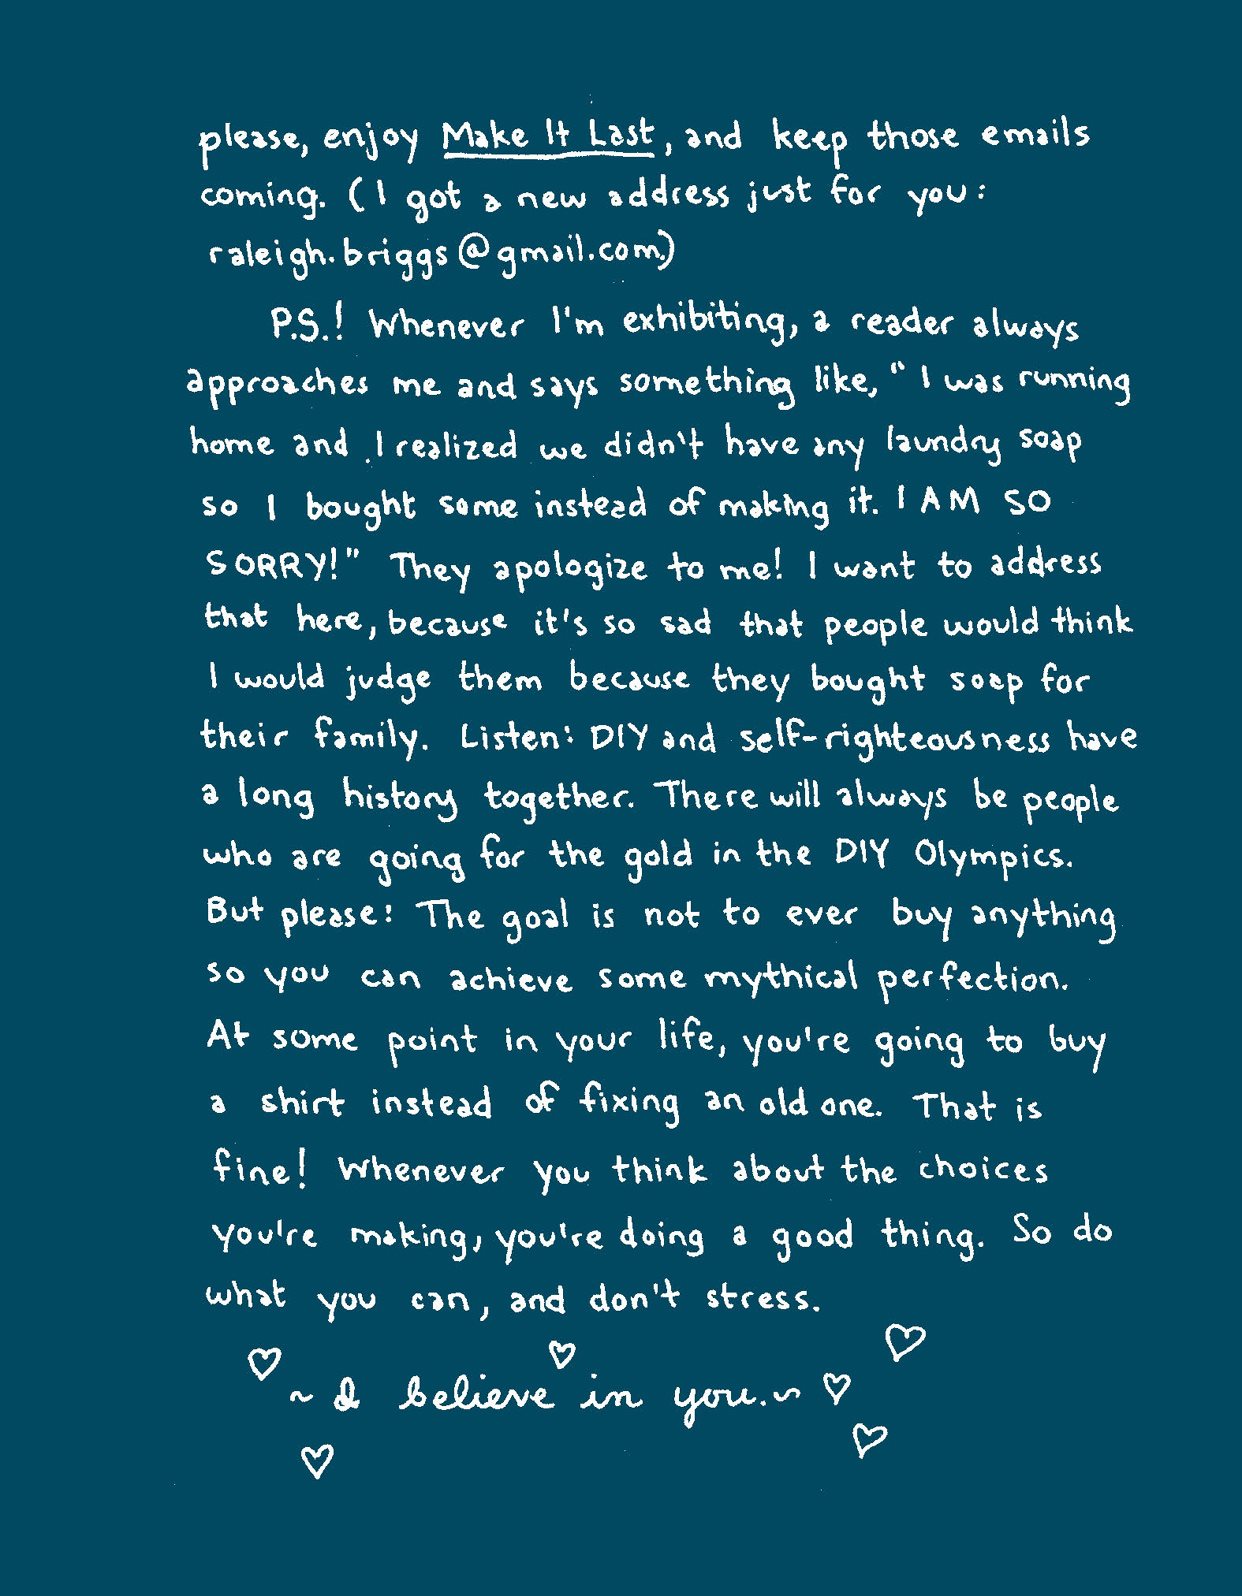 please, enjoy Make It Last, and keep those emails
coming. (I got a new address just for you:
raleigh.briggs@gmail.com.)
P.S.! Whenever I'm exhibiting, a reader always
approaches me and says something like, "I was running
home and I realized we didn't have any laundry soap
so I bought some instead of making it. I AM SO
SORRY!" They apologize to me! I want to address
that here, because it's so sad that people would think
I would judge them because they bought soap for
their family. Listen: DIY and self-righteousness have
a long history together. There will always be people
who are going for the gold in the DIY Olympics.
But please: The goal is not to ever buy anything
so you can achieve some mythical perfection.
At some point in your life, you're going to buy
a shirt instead of fixing an old one. That is
fine! Whenever you think about the choices
you're making, you're doing a good thing. So do
what you can, and don't stress.
~ I believe in you. ~